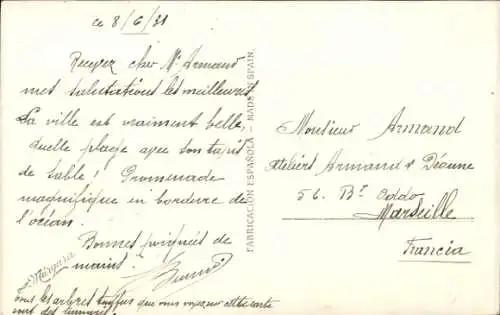 ce 8/6/31
Recevez cher Mr Armand
mes salutations les meilleures
La ville est vraiment belle,
quelle plage avec son tapis
de sable! Promenade
magnifique en bordure de
l'océan.
Bonnes poignées de
mains.
Tous les arbres touffus que vous voyez sur cette carte
sont des
FABRICACION ESPAÑOLA - MADE IN SPAIN.
Monsieur Armand
Ateliers Armand & Déonne
56. Bd Oddo
Marseille
Francia